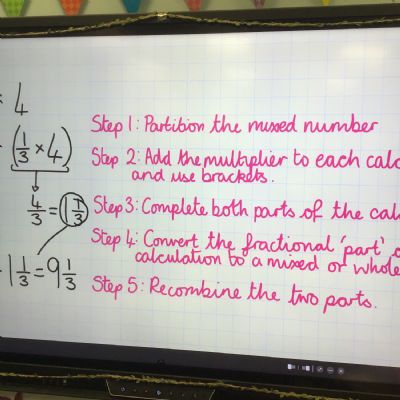 × 4
(1/3 × 4)
4/3 = 1 1/3
1 1/3 = 9 1/3
Step 1: Partition the mixed number
Step 2: Add the multiplier to each calc
and use brackets.
Step 3: Complete both parts of the cal
Step 4: Convert the fractional 'part'
calculation to a mixed or whole
Step 5: Recombine the two parts.